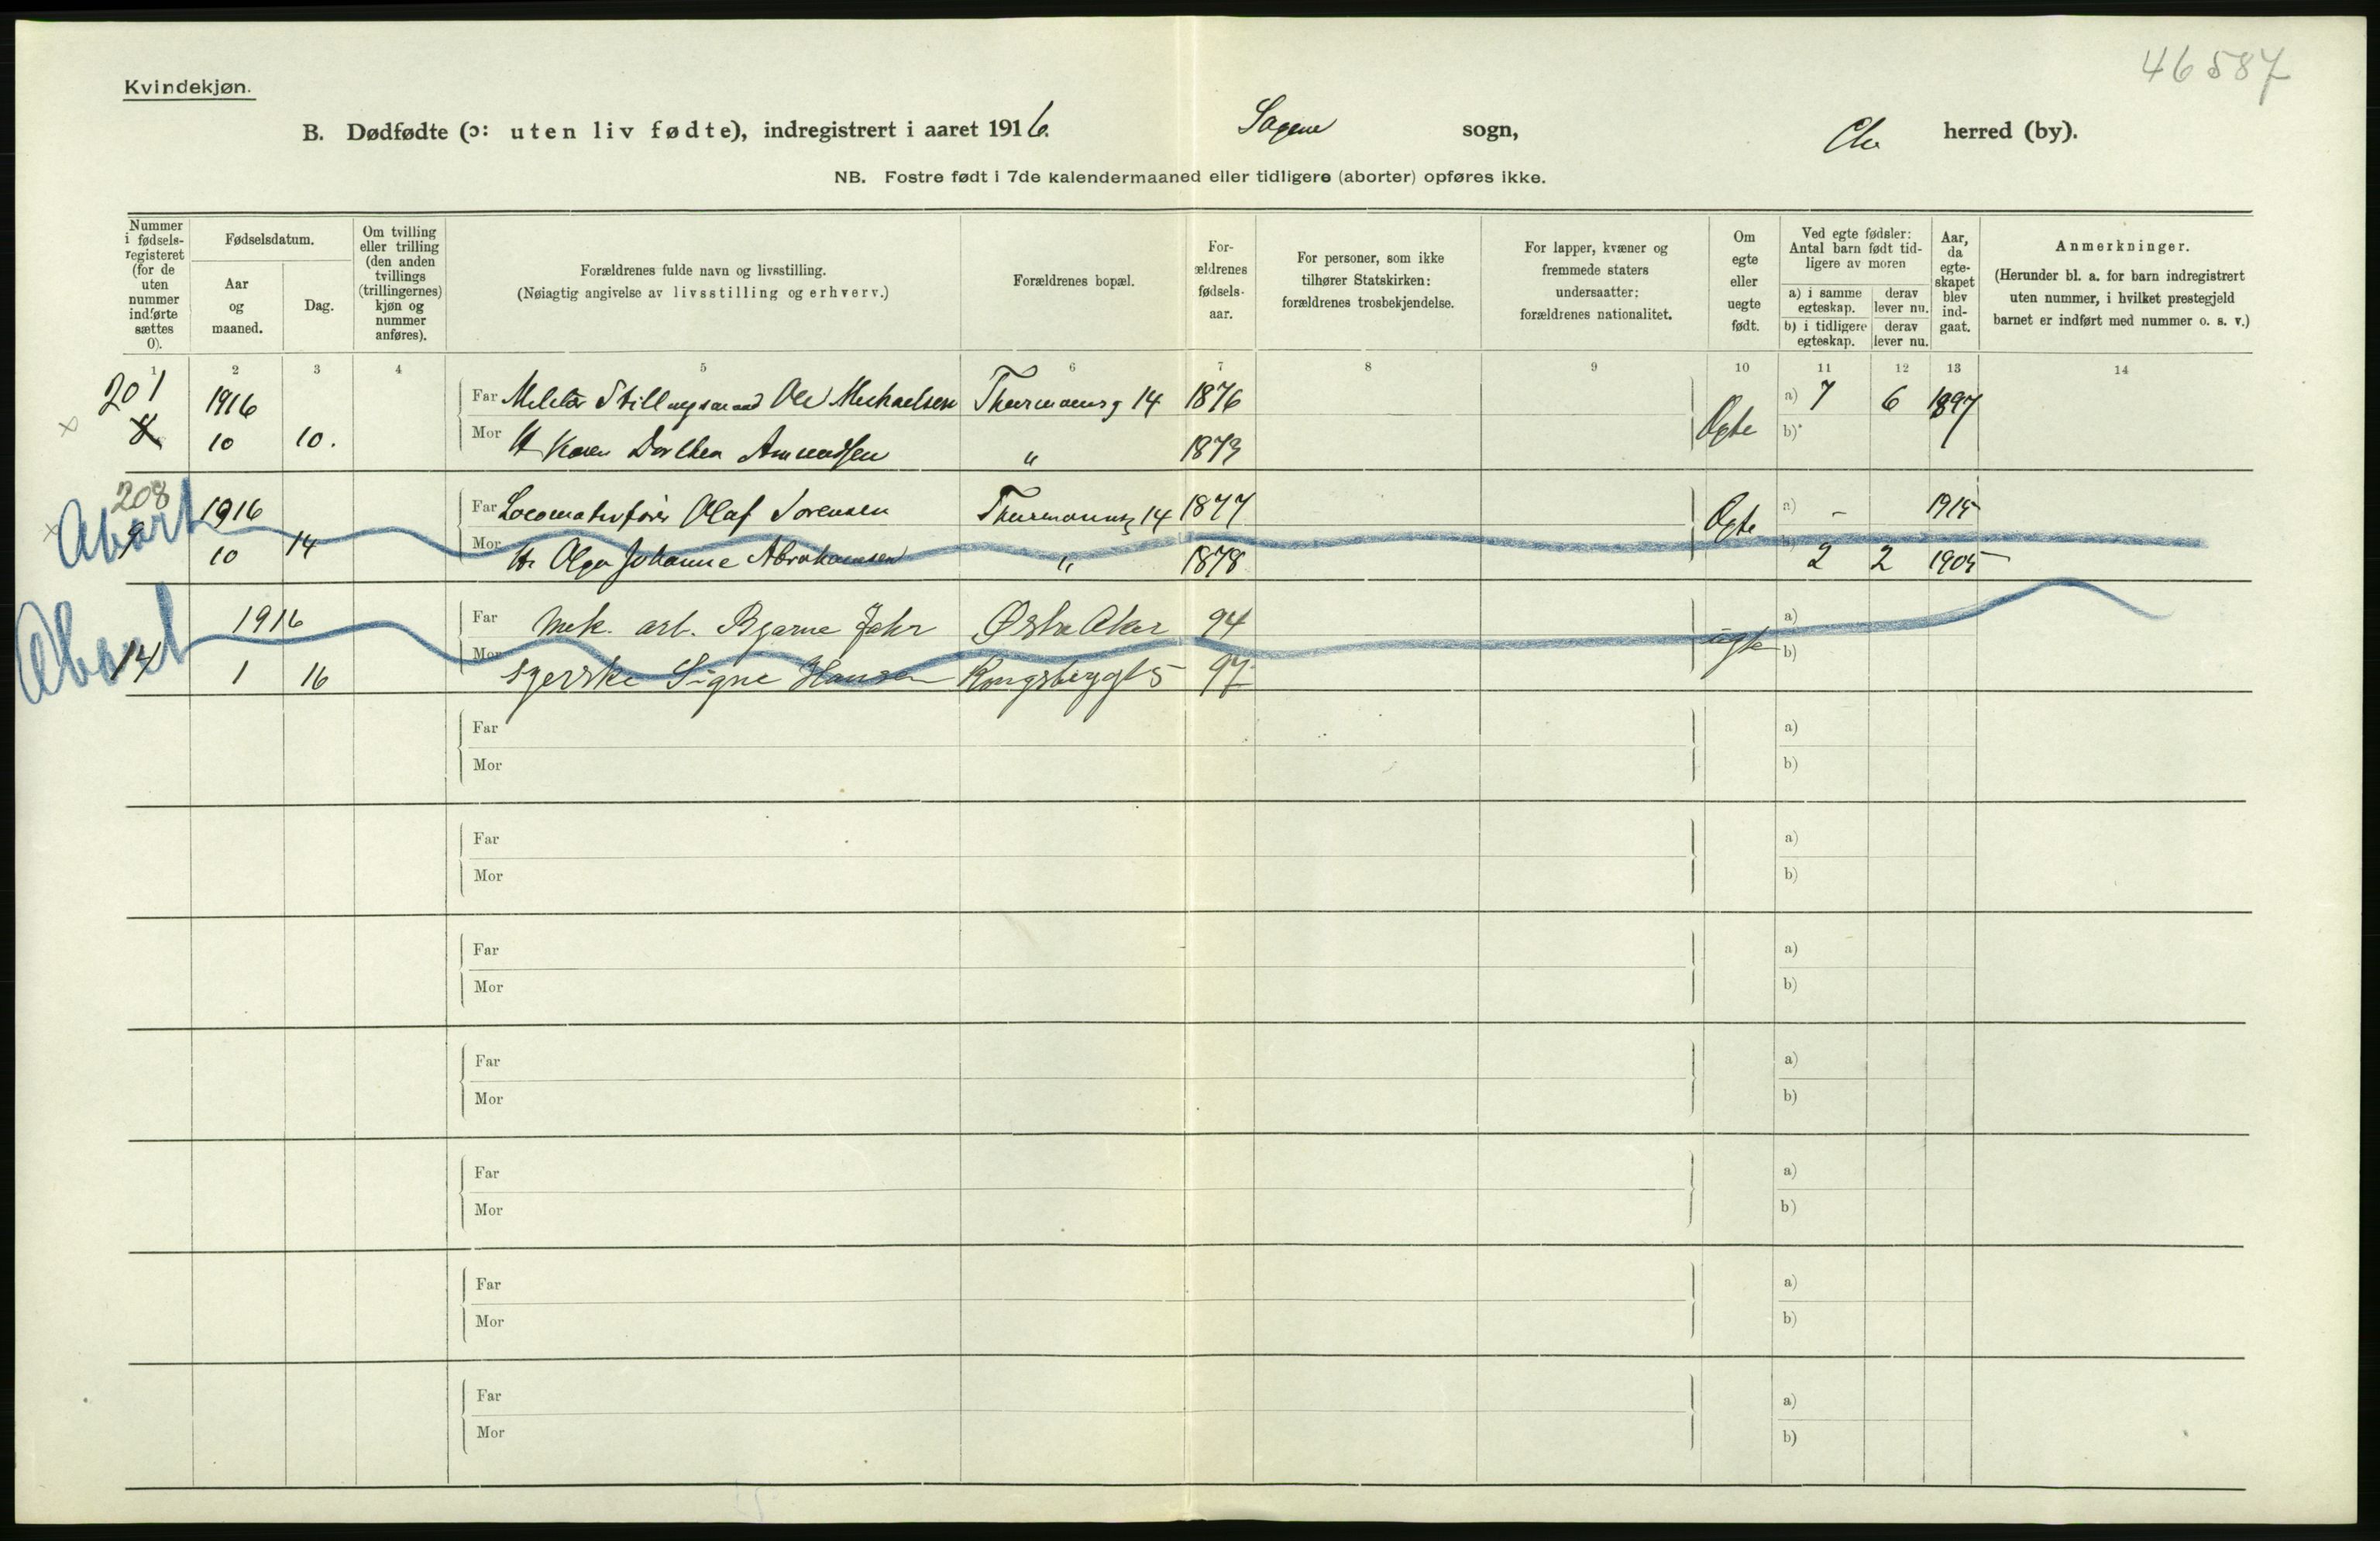 46587
Kvindekjøn.
B. Dødfødte (ɔ: uten liv fødte), indregistrert i aaret 1916. Sagene sogn, Chr herred (by).
NB. Fostre født i 7de kalendermaaned eller tidligere (aborter) opføres ikke.
Nummer i fødsels-registeret (for de uten nummer indførte sættes 0).
Fødselsdatum.
Aar og maaned.
Dag.
Om tvilling eller trilling (den anden tvillings (trillingernes) kjøn og nummer anføres).
Forældrenes fulde navn og livsstilling.
(Nøiagtig angivelse av livsstilling og erhverv.)
Forældrenes bopæl.
For-ældrenes fødsels-aar.
For personer, som ikke tilhører Statskirken: forældrenes trosbekjendelse.
For lapper, kvæner og fremmede staters undersaatter: forældrenes nationalitet.
Om egte eller uegte født.
Ved egte fødsler: Antal barn født tid-ligere av moren
a) i samme egteskap.
derav lever nu.
b) i tidligere egteskap.
derav lever nu.
Aar, da egte-skapet blev ind-gaat.
Anmerkninger.
(Herunder bl. a. for barn indregistrert uten nummer, i hvilket prestegjeld barnet er indført med nummer o. s. v.)
1 2 3 4 5 6 7 8 9 10 11 12 13 14
201 1916 Far Ole Michaelsen Thurmannsg 14 1876 Egte a) 7 6 1897
x 10 10. Mor H. Karen Dorthea Amundsen " 1873 b)
208 Abort 1916 Far Locomotivfører Olaf Sorensen Thurmannsg 14 1877 Egte a) - 1915
x 9 10 14 Mor H. Olga Johanne Abrahamsen " 1878 b) 2 2 1905
Abort 1916 Far Mek. arb. Bjarne Jahr Østre Aker 94 uegte a)
14 1 16 Mor syerske Signe Hansen Kongsberggt 5 97 b)
Far a)
Mor b)
Far a)
Mor b)
Far a)
Mor b)
Far a)
Mor b)
Far a)
Mor b)
Far a)
Mor b)
Far a)
Mor b)